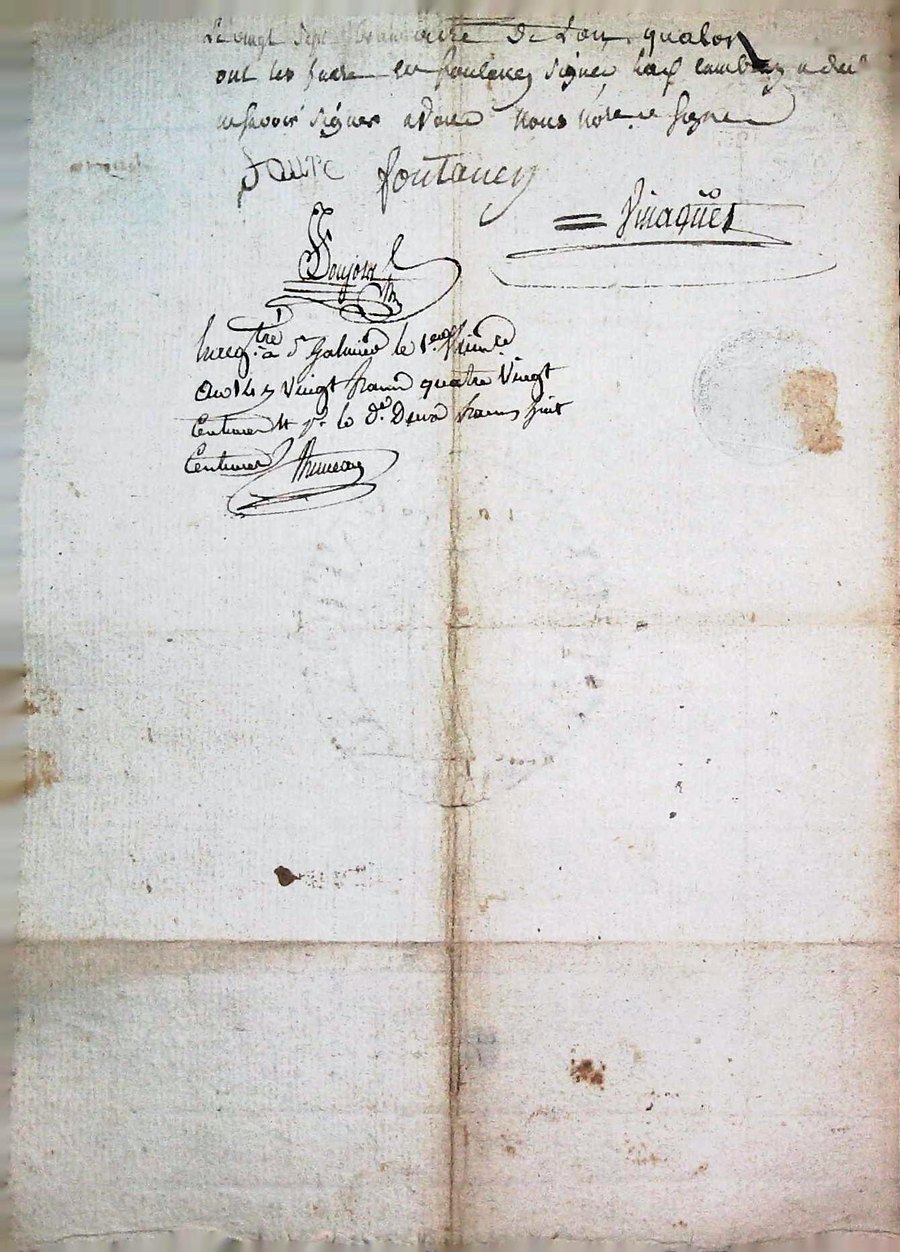 Le vingt Sept Brumaire De L'an quator
ont les faure et fontaney Signé Lad Cambray a dit
ne Savoir Signer avons Nous note.re Signé
faure fontaney
Vinaquet
Goujon
Enreg.tré a S.t Galmier le 1.er frim.re
an 14 Vingt francs quatre Vingt
Centimes et p.r le d.e Deux francs huit
Centimes